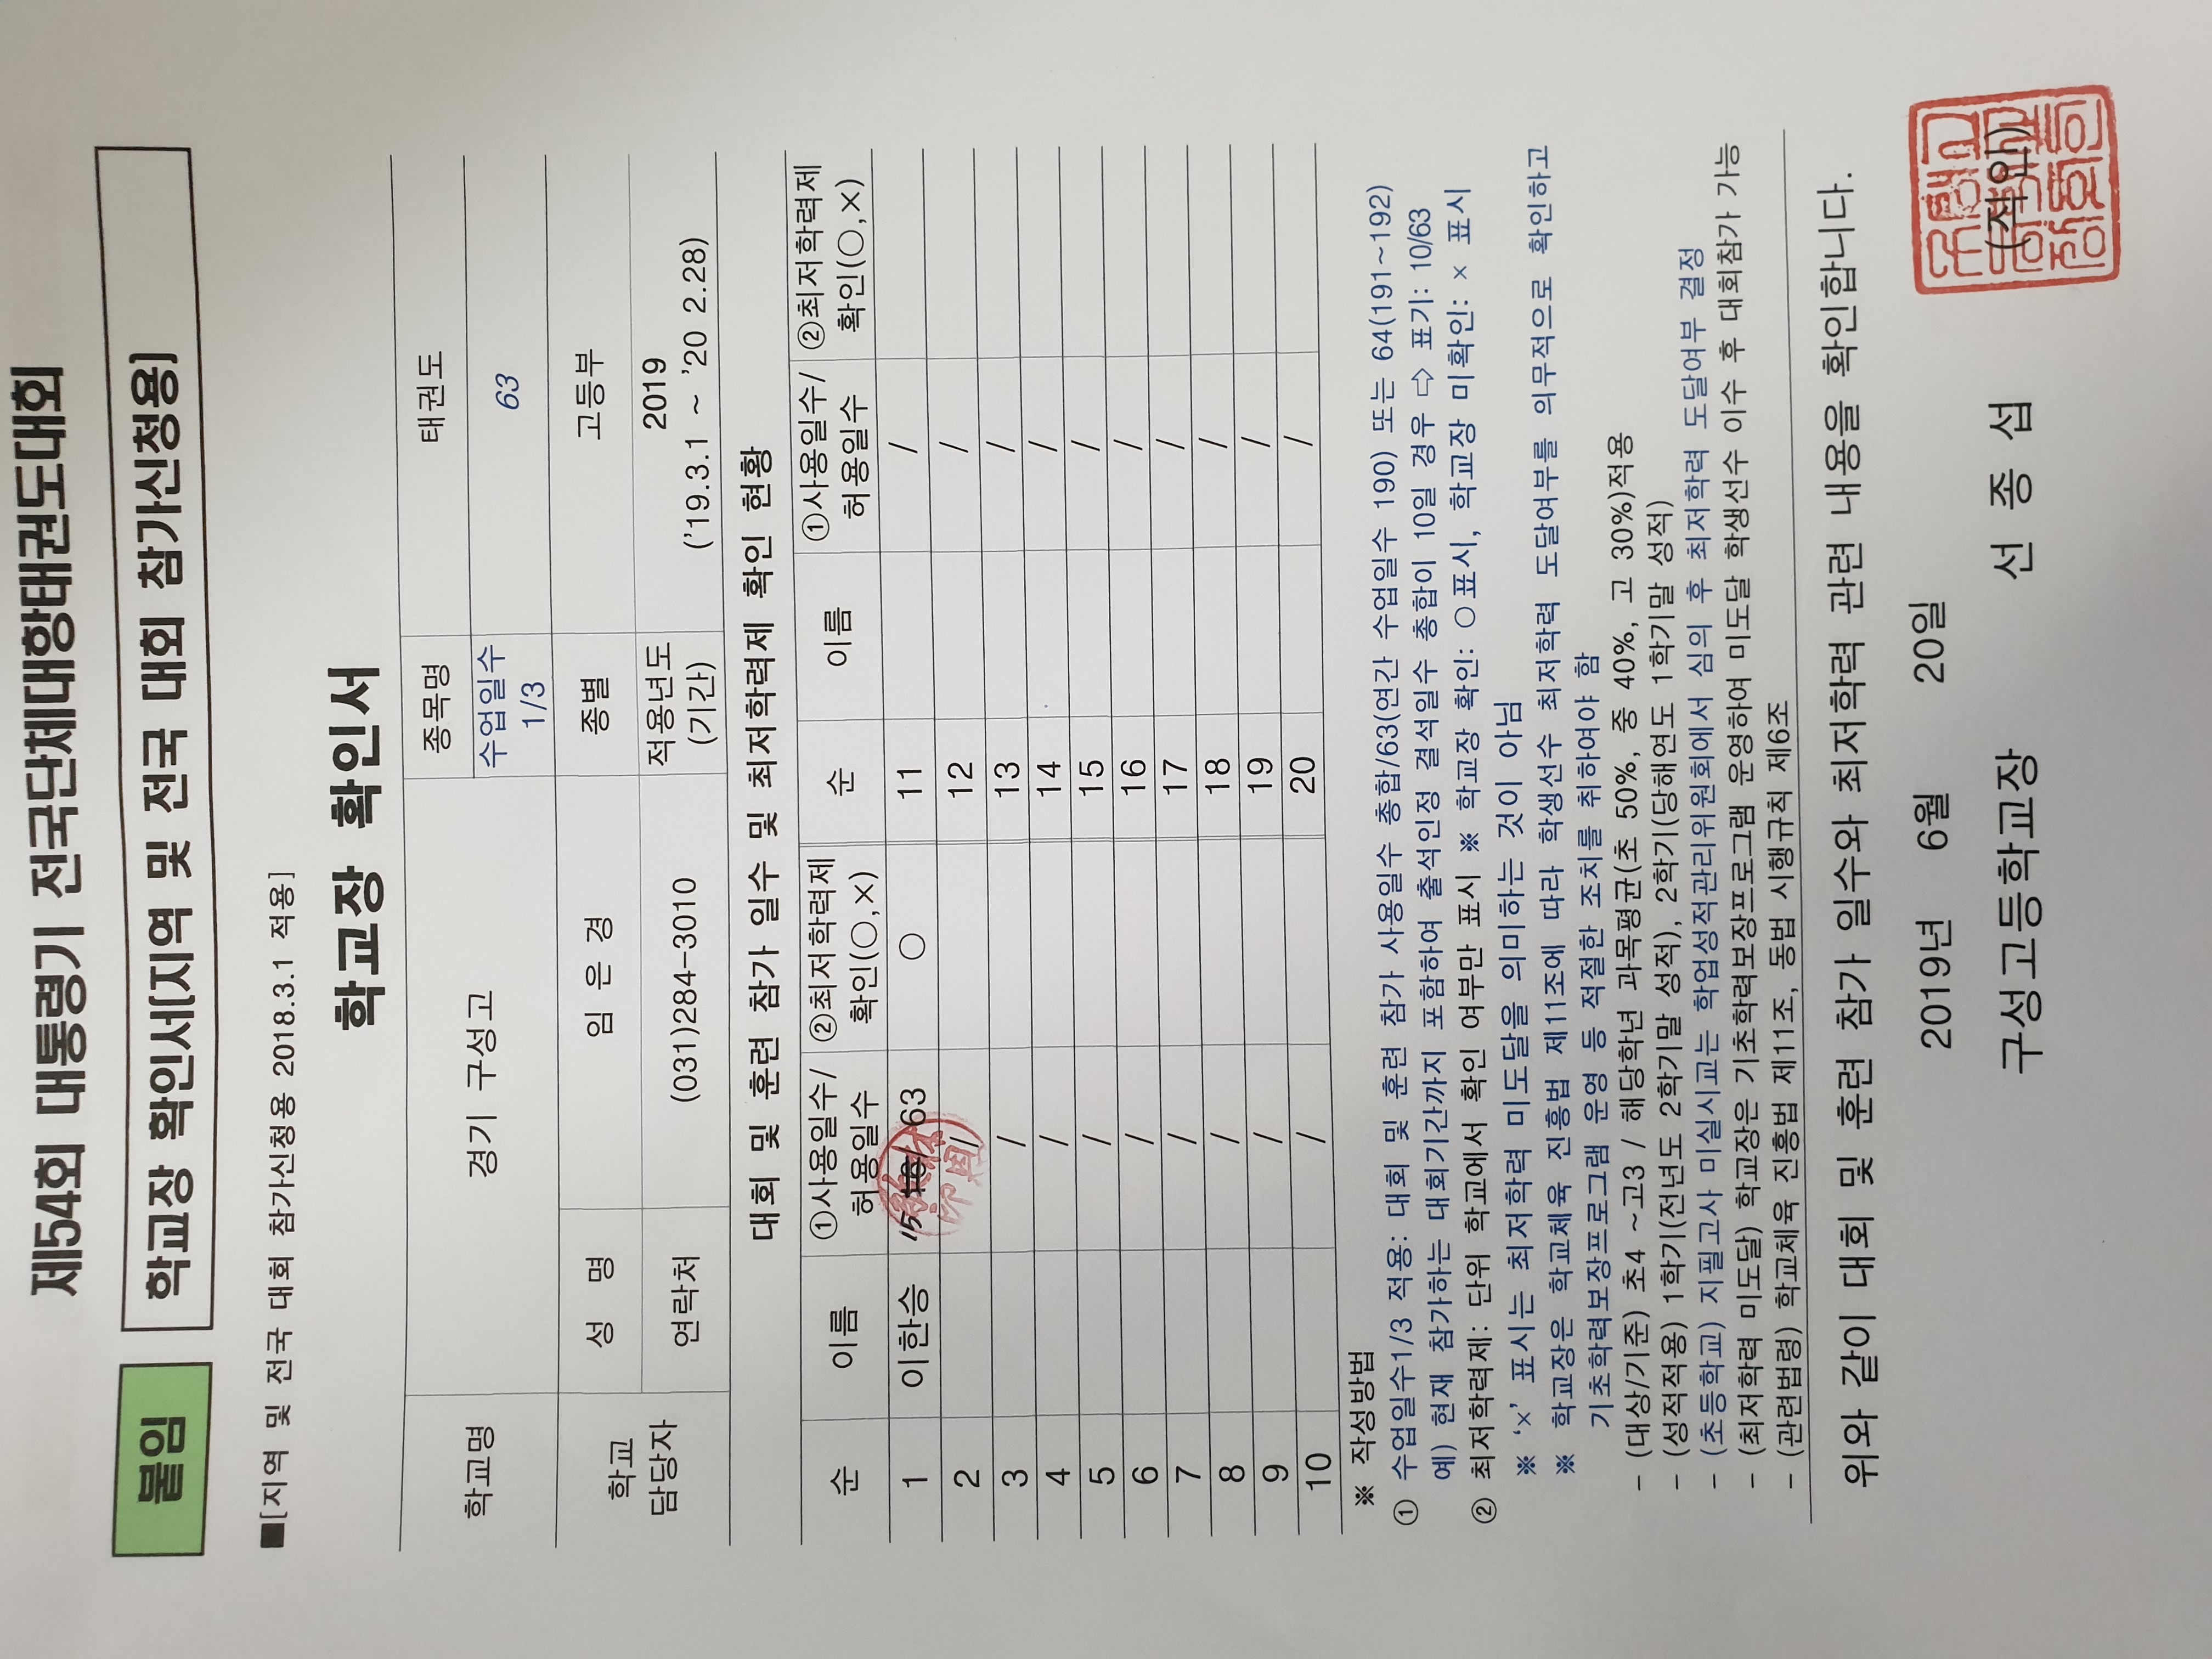 제54회 대통령기 전국단체대항태권도대회
붙임 학교장 확인서[지역 및 전국 대회 참가신청용]
■[지역 및 전국 대회 참가신청용 2018.3.1 적용]
학교장 확인서
학교명 경기 구성고 종목명 태권도
수업일수 1/3 63
학교 담당자 성 명 임 은 경 종별 고등부
연락처 (031)284-3010 적용년도 (기간) 2019 ('19.3.1 ~ '20 2.28)
대회 및 훈련 참가 일수 및 최저학력제 확인 현황
순 이름 ①사용일수/허용일수 ②최저학력제 확인(○,×) 순 이름 ①사용일수/허용일수 ②최저학력제 확인(○,×)
1 이한승 15 / 63 ○ 11 /
2 / 12 /
3 / 13 /
4 / 14 /
5 / 15 /
6 / 16 /
7 / 17 /
8 / 18 /
9 / 19 /
10 / 20 /
※ 작성방법
① 수업일수1/3 적용: 대회 및 훈련 참가 사용일수 총합/63(연간 수업일수 190) 또는 64(191~192)
예) 현재 참가하는 대회기간까지 포함하여 출석인정 결석일수 총합이 10일 경우 ⇨ 표기: 10/63
② 최저학력제: 단위 학교에서 확인 여부만 표시 ※ 학교장 확인: ○표시, 학교장 미확인: × 표시
※ '×' 표시는 최저학력 미도달을 의미하는 것이 아님
※ 학교장은 학교체육 진흥법 제11조에 따라 학생선수 최저학력 도달여부를 의무적으로 확인하고
기초학력보장프로그램 운영 등 적절한 조치를 취하여야 함
- (대상/기준) 초4 ~고3 / 해당학년 과목평균(초 50%, 중 40%, 고 30%)적용
- (성적적용) 1학기(전년도 2학기말 성적), 2학기(당해연도 1학기말 성적)
- (초등학교) 지필고사 미실시교는 학업성적관리위원회에서 심의 후 최저학력 도달여부 결정
- (최저학력 미도달) 학교장은 기초학력보장프로그램 운영하여 미도달 학생선수 이수 후 대회참가 가능
- (관련법령) 학교체육 진흥법 제11조, 동법 시행규칙 제6조
위와 같이 대회 및 훈련 참가 일수와 최저학력 관련 내용을 확인합니다.
2019년 6월 20일
구성고등학교장 선 종 섭 (직인)